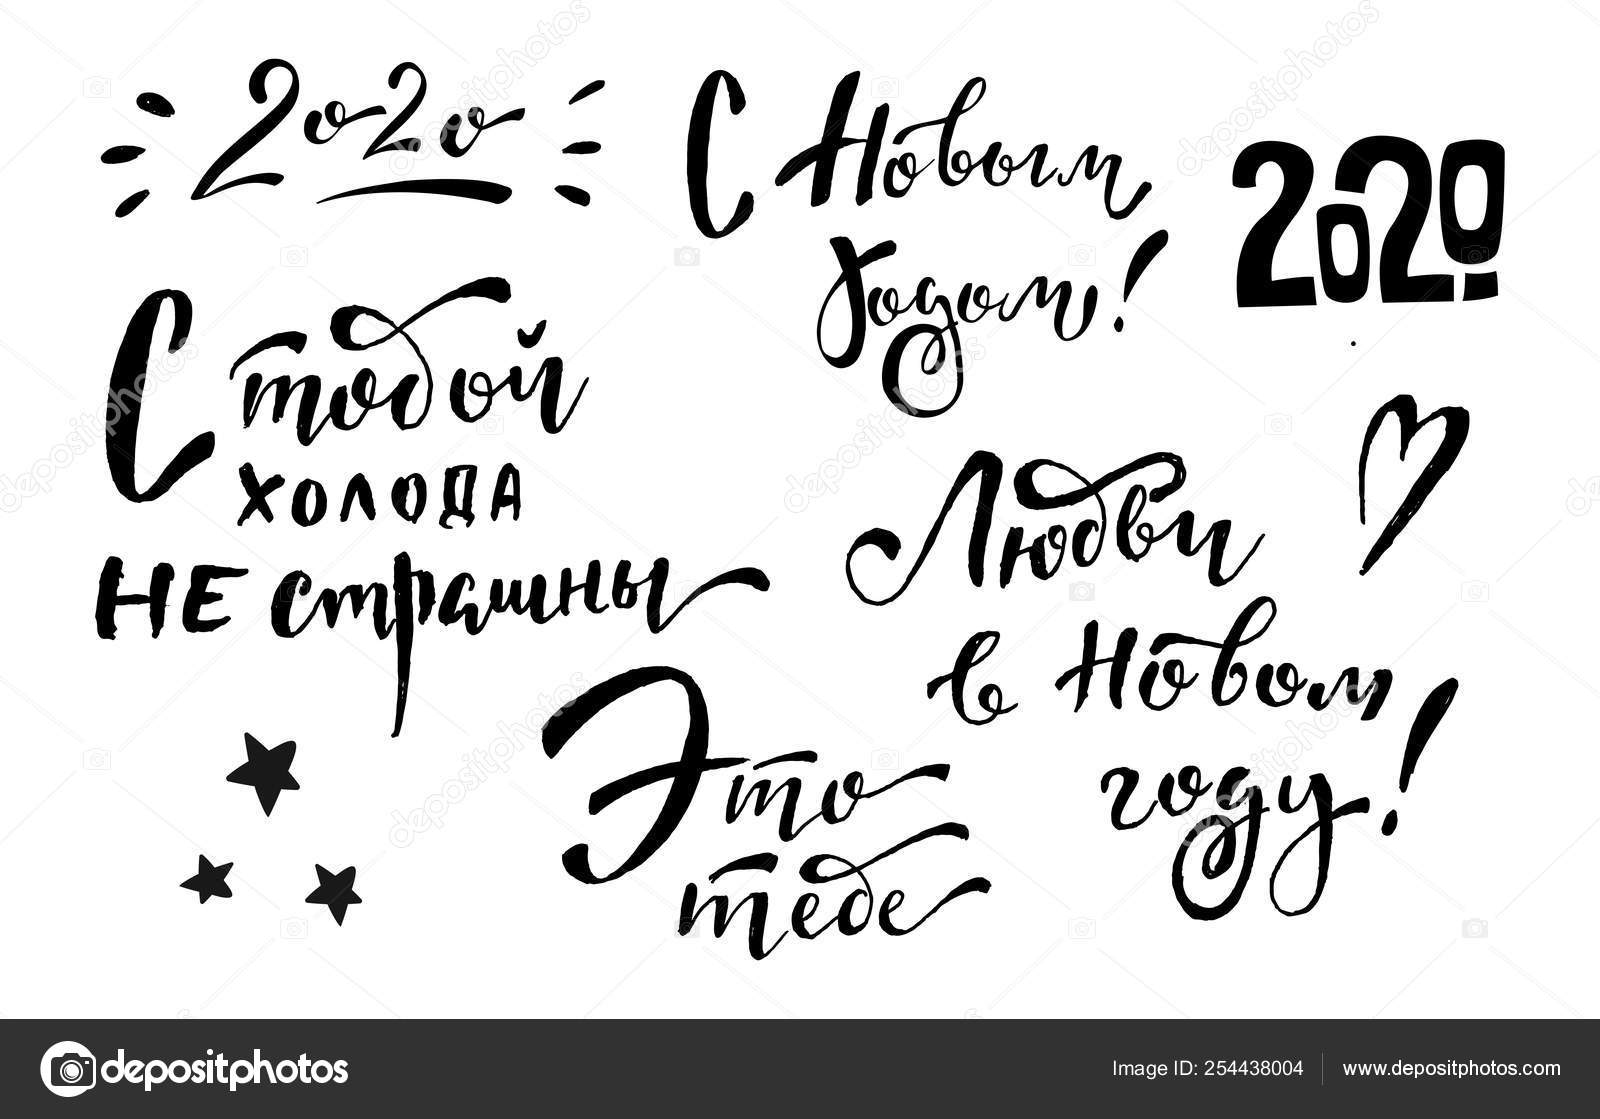 2020
С Новым
Годом!
2020
С тобой
холода
НЕ страшны
Любви
в Новом
году!
Это
тебе
depositphotos
Image ID: 254438004
www.depositphotos.com